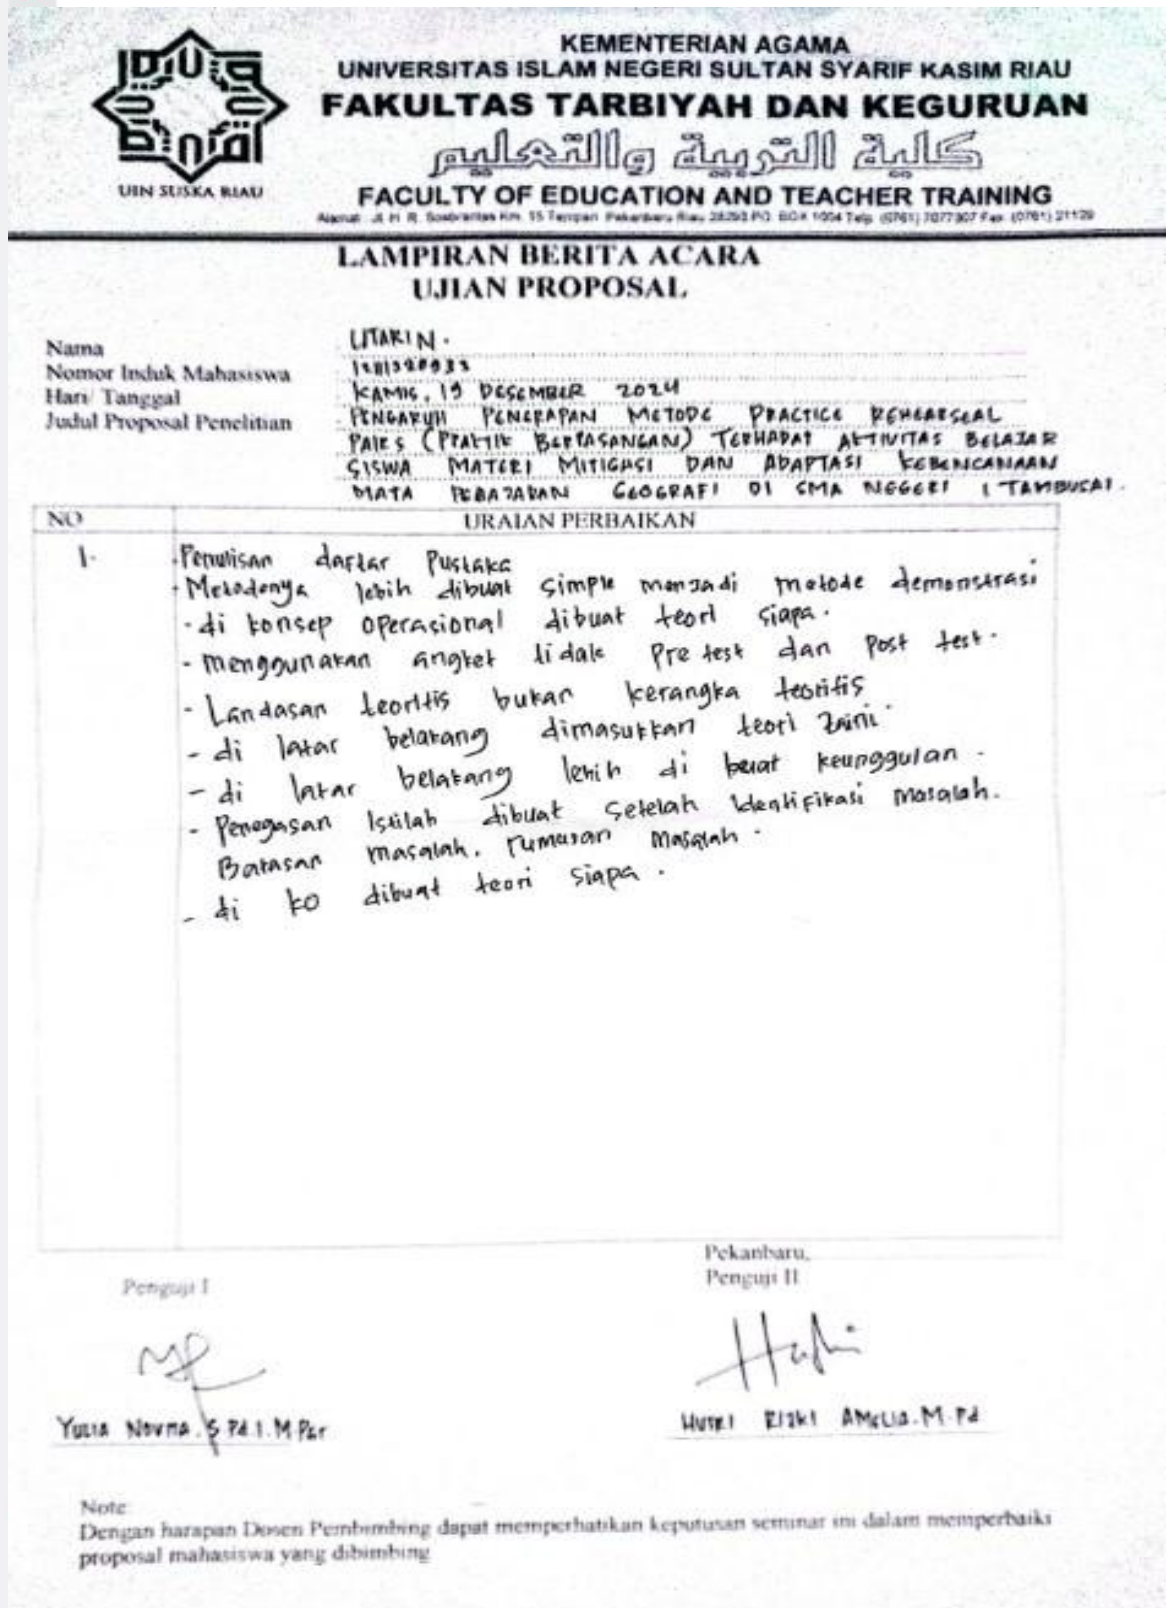 UIN SUSKA RIAU
KEMENTERIAN AGAMA
UNIVERSITAS ISLAM NEGERI SULTAN SYARIF KASIM RIAU
FAKULTAS TARBIYAH DAN KEGURUAN
كلية التربية والتعليم
FACULTY OF EDUCATION AND TEACHER TRAINING
Alamat : Jl. H. R. Soebrantas Km. 15 Tampan Pekanbaru Riau 28293 PO. BOX 1004 Telp. (0761) 7077307 Fax. (0761) 21129
LAMPIRAN BERITA ACARA
UJIAN PROPOSAL
Nama
Nomor Induk Mahasiswa
Hari/ Tanggal KAMIS, 19 DESEMBER 2024
Judul Proposal Penelitian : PENGARUH PENERAPAN METODE PRACTICE REHEARSEAL
PAIRS (PRAKTIK BERPASANGAN) TERHADAP AKTIVITAS BELAJAR
SISWA MATERI MITIGASI DAN ADAPTASI KEBENCANAAN
MATA GEOGRAFI DI SMA NEGERI 1 TAMBUSAI.
NO URAIAN PERBAIKAN
1. - Penulisan daftar Pustaka
- Metodenya lebih dibuat simple menjadi metode demonstrasi
- di konsep operasional dibuat teori siapa.
- menggunakan angket tidak Pre test dan Post test.
- Landasan teoritis bukan kerangka teoritis
- di latar belakang dimasukkan teori Zaini.
- di latar belakang lebih di buat keunggulan.
- Penegasan Istilah dibuat setelah Identifikasi Masalah.
Batasan masalah, rumusan masalah.
- di KO dibuat teori siapa.
Pekanbaru,
Penguji I Penguji II
YULIA NOVITA. S.Pd.I. M.Par HUTRI RIZKI AMELIA. M.Pd
Note:
Dengan harapan Dosen Pembimbing dapat memperhatikan keputusan seminar ini dalam memperbaiki
proposal mahasiswa yang dibimbing